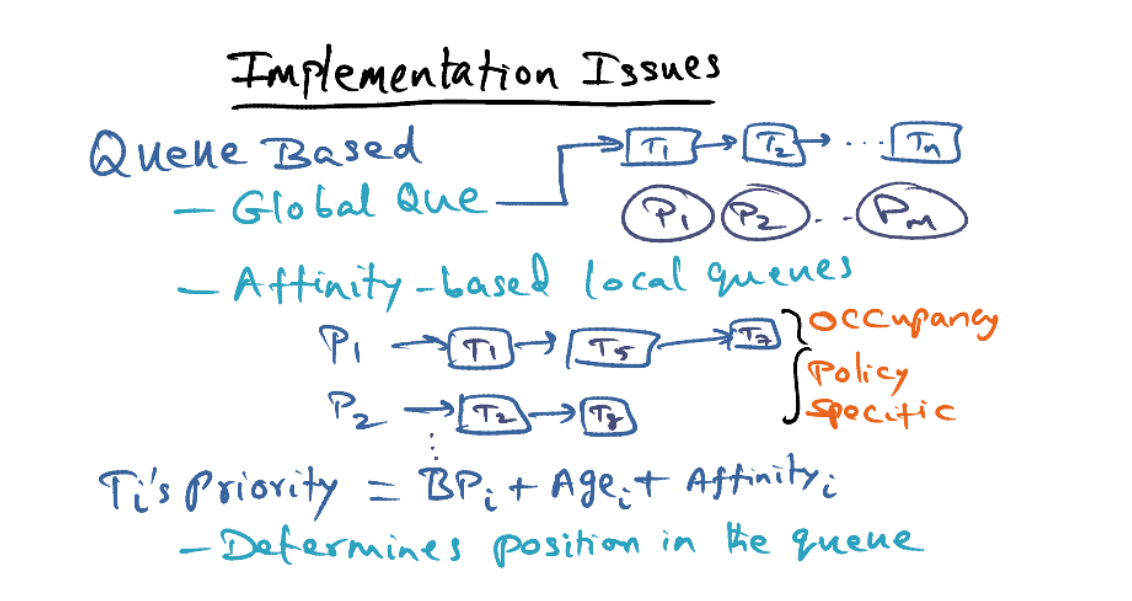 Implementation Issues
Queue Based
T1 T2 ... Tn
– Global Que
P1 P2 ... Pm
– Affinity-based local queues
P1 T1 T5 T7 Occupancy
Policy
P2 T2 T8 Specific
Ti's Priority = BPi + Agei + Affinityi
– Determines position in the queue